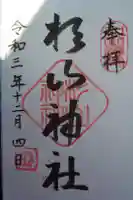 奉拝
杉山神社
令和三年十二月四日